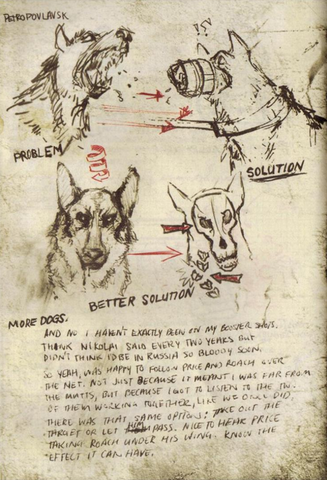 PETROPOVLAVSK
!?!
PROBLEM
SOLUTION
BETTER SOLUTION
MORE DOGS.
AND NO I HAVEN'T EXACTLY BEEN ON MY BOOSTER SHOTS.
THINK NIKOLAI SAID EVERY TWO YEARS BUT
DIDN'T THINK I'D BE IN RUSSIA SO BLOODY SOON.
SO YEAH, WAS HAPPY TO FOLLOW PRICE AND ROACH OVER
THE NET. NOT JUST BECAUSE IT MEANT I WAS FAR FROM
THE MUTTS, BUT BECAUSE I GOT TO LISTEN TO THE TW
OF THEM WORKING TOGETHER, LIKE WE ONCE DID.
THERE WAS THAT SAME OPTIONS: TAKE OUT THE
TARGET OR LET PASS. NICE TO HEAR PRICE
TAKING ROACH UNDER HIS WING. KNOW THE
EFFECT IT CAN HAVE.